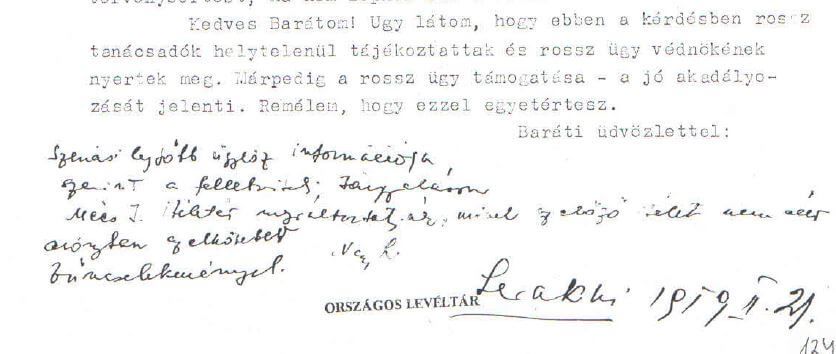 Kedves Barátom! Ugy látom, hogy ebben a kérdésben rossz
tanácsadók helytelenül tájékoztattak és rossz ügy védnökének
nyertek meg. Márpedig a rossz ügy támogatása - a jó akadályo-
zását jelenti. Remélem, hogy ezzel egyetértesz.
Baráti üdvözlettel:
Szenási legfőbb ügyész információja
szerint a fellebviteli tárgyaláson
Mécs I. ítéletét megváltoztatják, mivel az előző ítélet nem
arányban az elkövetett
bűncselekménnyel.
ORSZÁGOS LEVÉLTÁR
1959. II. 21.
124